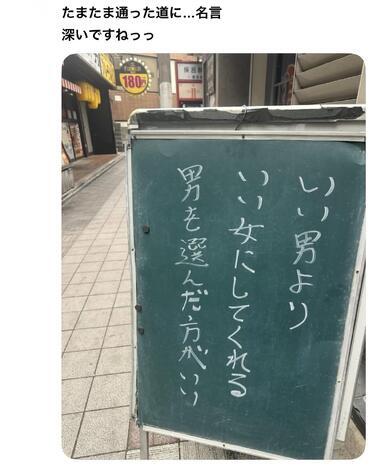 たまたま通った道に...名言
深いですねっっ
180円
いい男より
いい女にしてくれる
男を選んだ方がいい